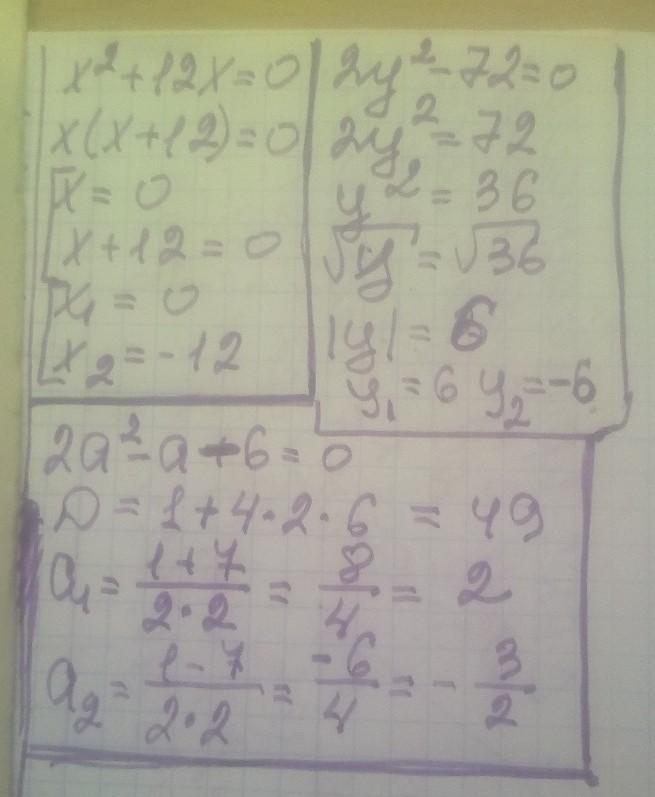 x²+12x=0
x(x+12)=0
[x=0
x+12=0
[x₁=0
x₂=-12
2y²-72=0
2y²=72
y²=36
√y=√36
|y|=6
y₁=6 y₂=-6
2a²-a+6=0
D=1+4·2·6=49
a₁=(1+7)/(2·2)=8/4=2
a₂=(1-7)/(2·2)=-6/4=-3/2